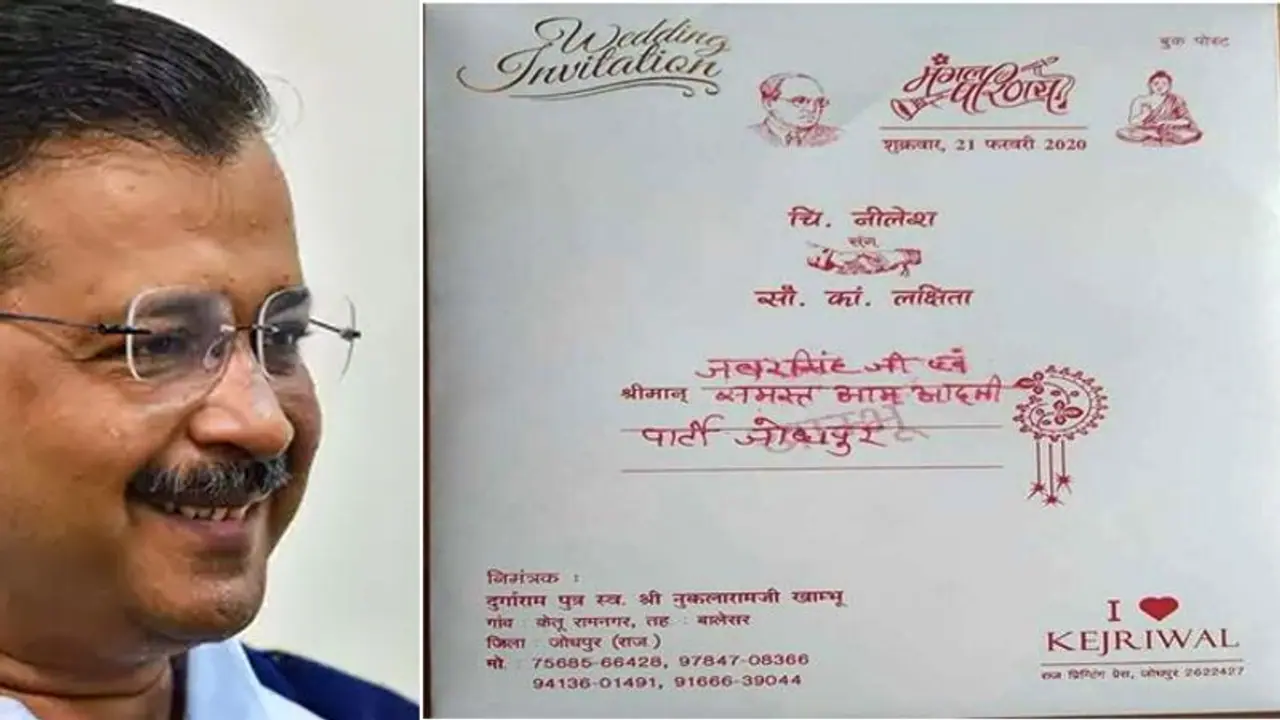 Wedding
Invitation
बुक पोस्ट
मंगल
परिणय
शुक्रवार, 21 फरवरी 2020
चि. नीलेश
संग
सौ. कां. लक्षिता
जबरसिंह जी एवं
श्रीमान् समस्त आम आदमी
पार्टी जोधपुर
निमंत्रक :
दुर्गाराम पुत्र स्व. श्री नुकलारामजी खाम्भू
गांव : केतू रामनगर, तह : बालेसर
जिला : जोधपुर (राज.)
मो. : 75685-66428, 97847-08366
94136-01491, 91666-39044
I ♥
KEJRIWAL
राज प्रिण्टिंग प्रेस, जोधपुर 2622427